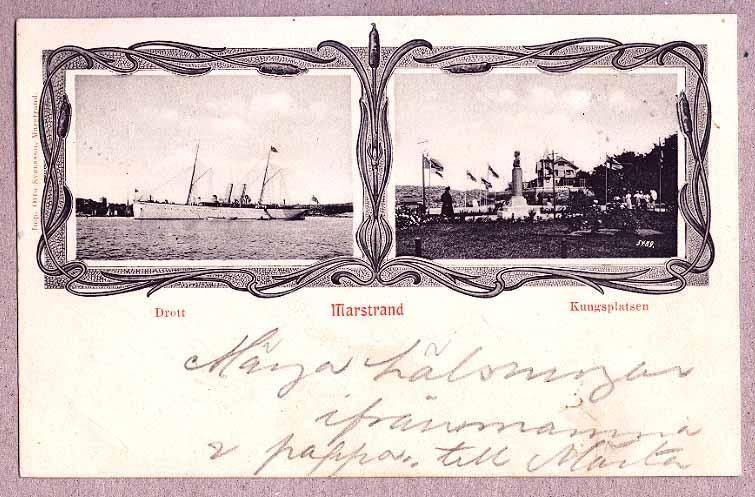 Imp. Otto Svensson, Marstrand.
5489.
Drott
Marstrand
Kungsplatsen
Många hälsningar
ifrån mamma
pappa. till Märta